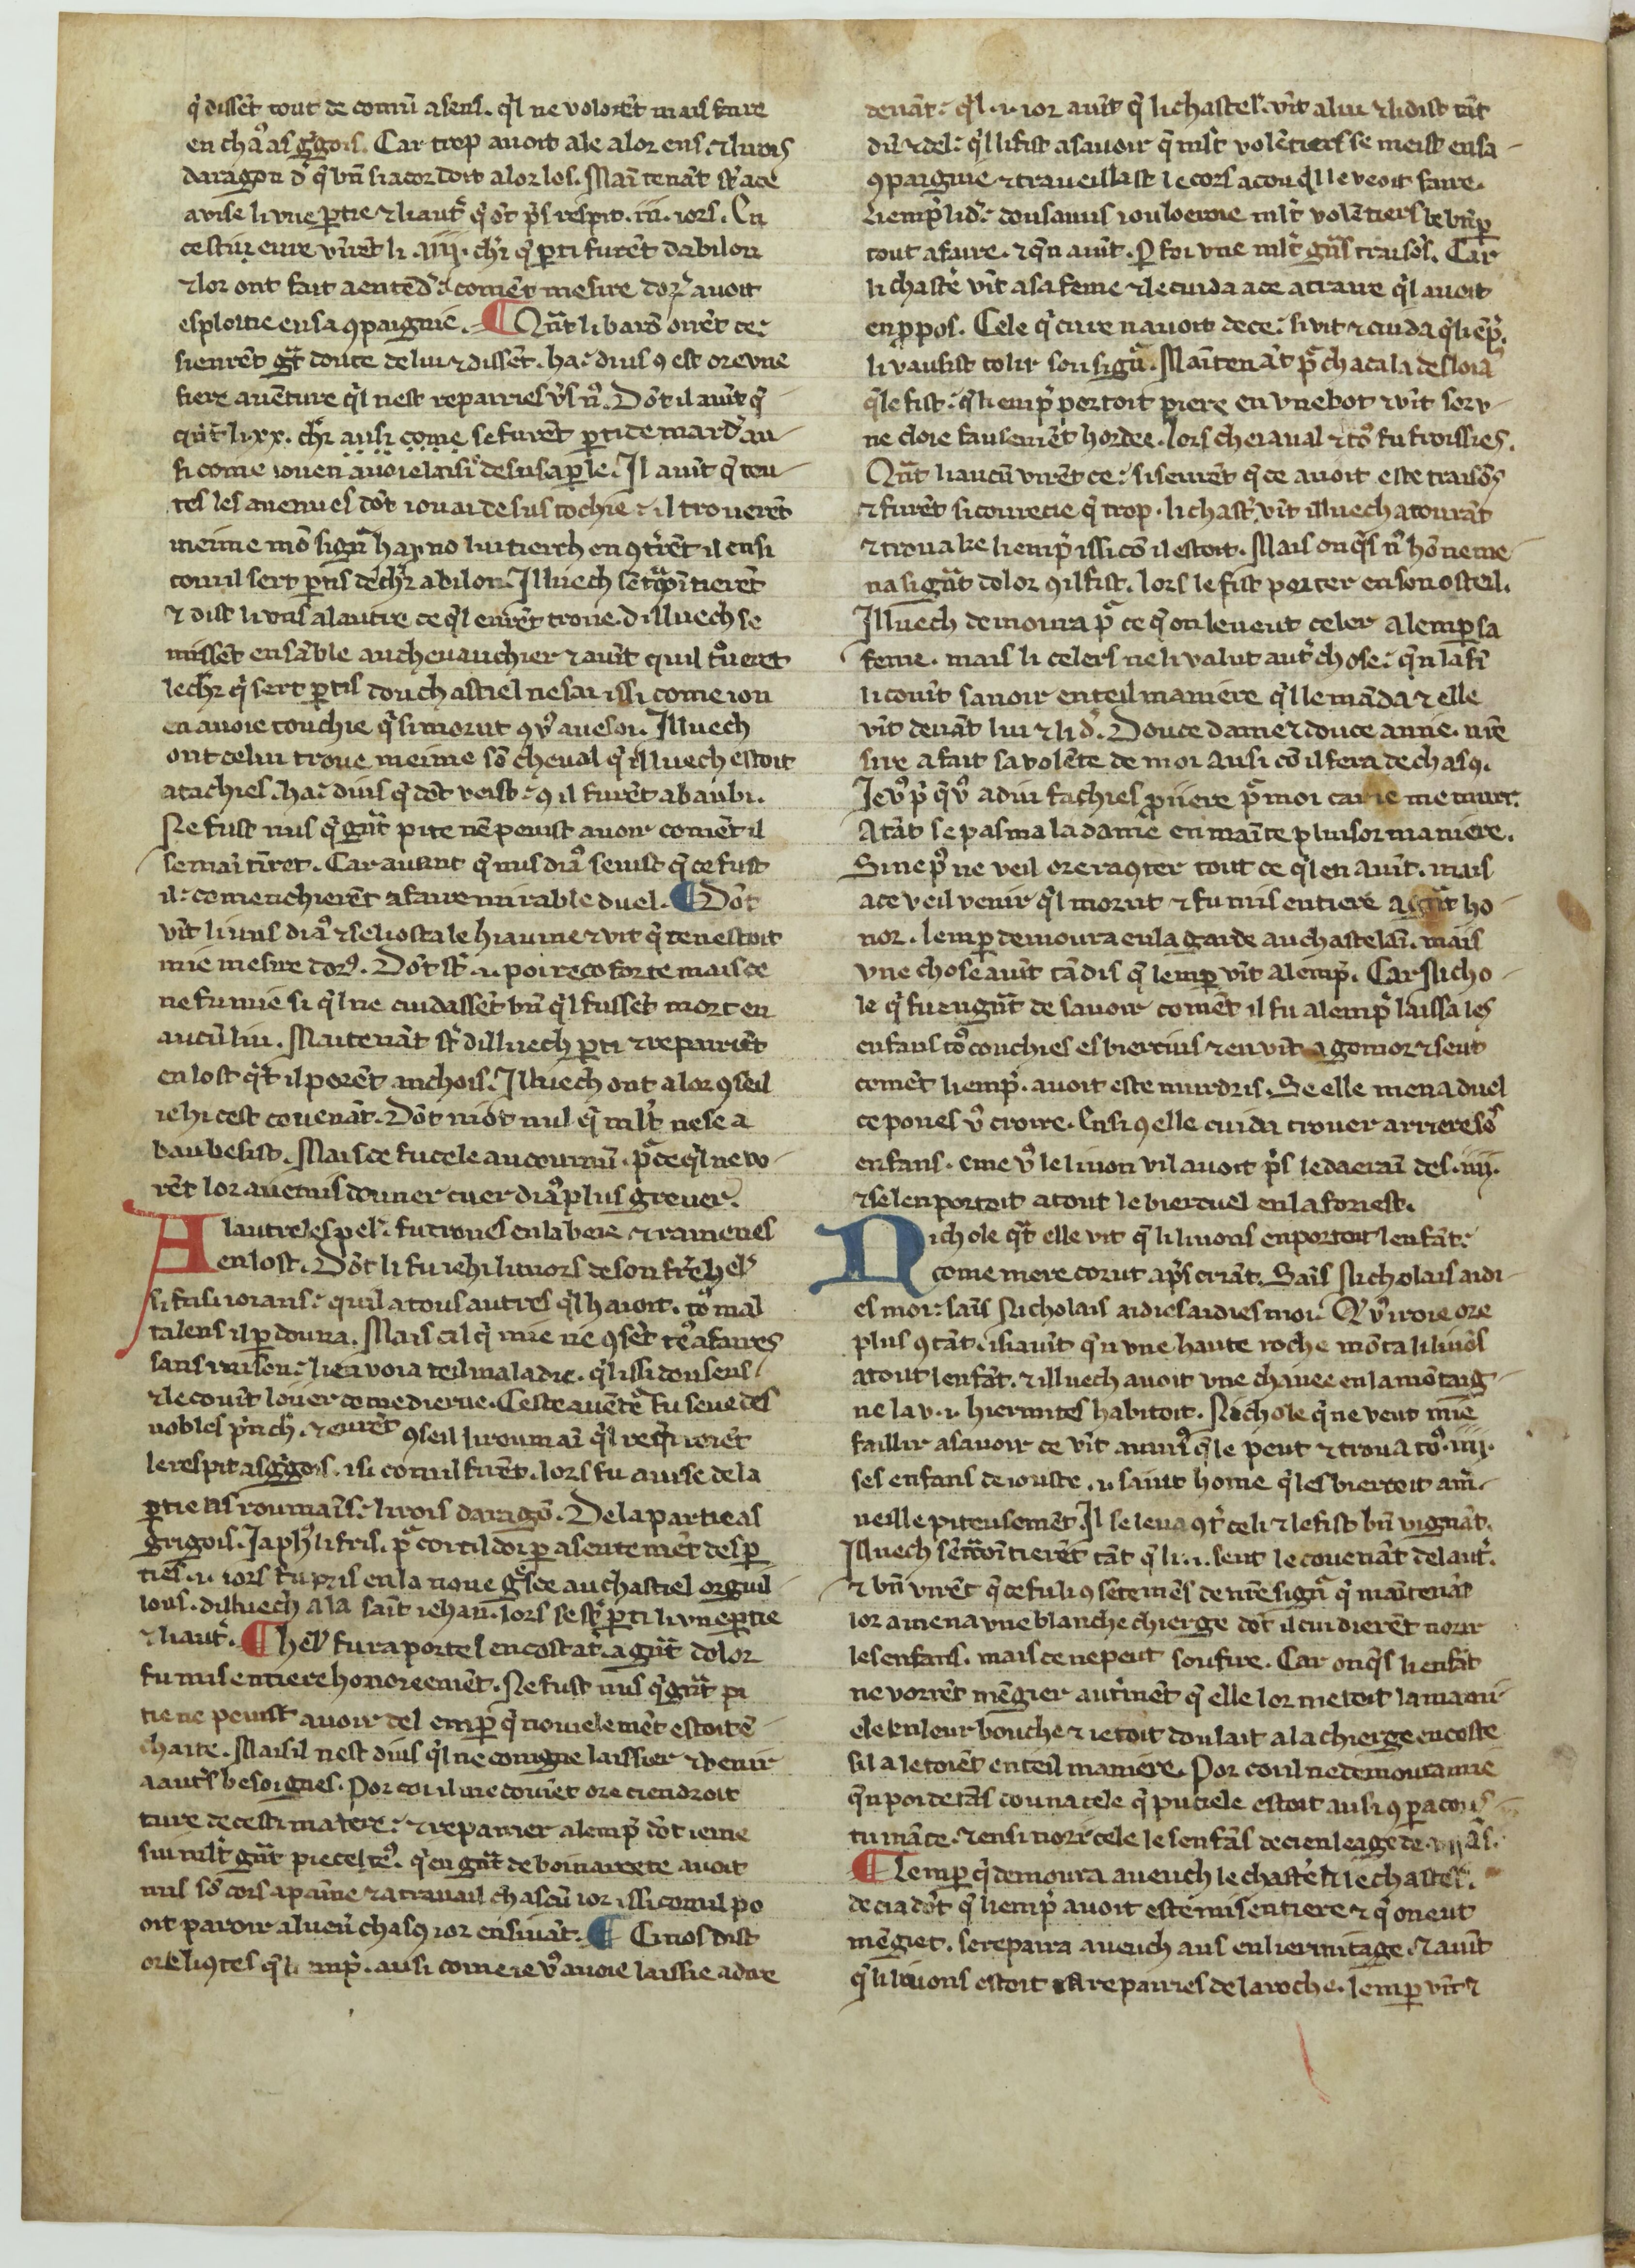 q̃ dissẽt tout de comũ asens. q̃l ne volorẽt mais faire
en chãas g̃gois. Car trop auoit ale alor ens. ⁊ li rois
daragon d q̃ bñ siacordoit alor los. Maĩtenãt st ace
auise li vne ꝑtie ⁊ li autr̃ q̃ õt pͥs respit .iii. iors. En
cesti eure vĩrẽt li .iiij. chr̃ q̃ ꝑti furẽt dabilon
⁊ lor ont fait aentẽdr̃ comẽt mesire dor auoit
esploitie en sa ꝯpaignie. ¶ Qñt li barõ oirẽt ce
si eurẽt gr̃t doute de lui ⁊ dissẽt. ha dius ꝯ est ore vne
fiere auẽture q̃l nest repairies vͥs nͦ. Dõt il auĩt q̃
qñt li xx. chr̃ ausi come se furẽt ꝑti de mard au
si come iou en auoie laisi desus aꝑle. Il auĩt q̃ tou
tes les auenues dõt iou ai desus tochie il trouerẽt
meime mõ sign̄ hayno lui tierch en ꝯtrẽt il ensi
com il sert ꝑtis de chr̃ abilon. Illuech sẽtracoĩtierẽt
⁊ dist li vns a lautre ce q̃l eurẽt troue. dilluech se
missẽt ensãble au cheuauchier ⁊ auĩt quil trouerẽt
le chr̃ q̃ sert ꝑtis dou chastiel ne sai issi come iou
en auoie touchie q̃ si morut ꝯ vͥ aues oi. Illuech
ont celui troue meime sõ cheual q̃ illuech estoit
atachies. ha dius q̃ dõt veist ꝯ il furẽt abaubi.
Ne fust nus q̃ gñt pite nẽ peuist auoir comẽt il
se maĩtĩret. Car auant q̃ nus diaͧ seuist q̃ ce fust
il comenchierẽt a faire mirable duel. ¶ Dõt
vĩt li uns diaͧ ⁊ se li osta le hiaume ⁊ vit q̃ ce nestoit
mie mesire dorͥ. Dõt st .i. poi recõforte mais ce
ne fu mie si q̃l ne cuidassẽt bñ q̃l fussẽt mort en
aucũ liu. Maitenãt st dilluech ꝑti ⁊ repairiẽt
en lost q̃t il porẽt anchois. Illuech ont a lor ꝯseil
iehi cest couenãt. Dõt niot nul q̃ mlt̃ ne se a
baubesist. Mais ce fu cele au couruũ. pͣ ce q̃l ne vo
rẽt lor anemis douner cuer diaͧ plus greuer.
A lautre les pelͥ. fu troues en la bere ⁊ ramenes
en lost. Dõt li fu iehi li mors de son frẽ helͥ
si fu si iorans quil a tous autres q̃l haioit. to mal
talens il ꝑdouna. Mais cil q̃ mie ne ꝯsẽt tͦ afaires
sans raison li enuoia teil maladie. q̃l issi dou sens
⁊ le couĩt loier come dierue. Ceste auẽtr̃ fu seue des
nobles pͥnch. ⁊ eurẽt ꝯseil li roumaĩ q̃l req̃rroiẽt
le respit as g̃gois. isi com il firẽt. lors fu auise de la
ꝑtie as roumaĩs li rois daragõ. De la partie as
grigois. Japhͥ li fris. pͣ coi cil doi ꝑ asentemẽt des ꝑ
ties .i. iors fu pris en la noue gͣde au chastiel orguil
lous. dilluech a la saĩt iehan. lors se st ꝑti li vne ꝑtie
⁊ li autr̃. ¶ helͥ fu raportes en costãt. a gñt dolor
fu mis en tiere honoreemẽt. Ne fust nus q̃ gñt pi
tie ne peuist auoir del emꝑ q̃ nouuelemẽt estoit ẽ
chaite. Mais il nest dius q̃l ne conigne laissier ⁊ venir
a autͥs besoignes. Por coi il me couiẽt ore ciendroit
ture de cesti matere ⁊ repairier a lempͥ dõt ie me
sui mlt̃ gñt piece tͥ. q̃ en gñt de boinareete auoit
mis sõ cors a paine ⁊ a trauail chascũ ior issi com il po
oit paroir a luer̃ chasꝯ ior ensiuãt. ¶ Ci nos dist
ore li ꝯtes q̃ li empͥ. ausi come ie vͥ auoie laissie a dire
deuãt q̃l .i. ior auĩt q̃ li chastelͥ. vĩt a lui ⁊ li dist tãt
dũ ⁊ del q̃l li fist asauoir q̃ mlt̃ volẽtiers se meist en sa
ꝯpaignie ⁊ traueillast le cors a cou q̃l le veoit faire.
Li empͥ li dͥ dous amis iou loeroie mlt̃ volẽtiers le bñ ꝑ
tout a faire. ⁊ q̃ n auĩt. ꝑ foi vne mlt̃ gñs traisõs. Car
li chastẽ vĩt a sa feme ⁊ le cuida a ce atraire q̃l auoit
en ꝓpos. Cele q̃ cure nauoit de ce si vit ⁊ cuida q̃ li ẽpͥ.
li vausist tolir son sign̄. Maĩtenãt pͣchaca la desloiaͧ
q̃ le fist q̃ li empͥ portoit piere en vne bot ⁊ vĩt sor v
ne cloie fausemẽt hordee. lors chei aual ⁊ toͥ fu froissies.
Qñt li aucũ virẽt ce si seurẽt q̃ ce auoit este traisõs
⁊ furẽt si courecie q̃ trop. li chastͥ vĩt illuech acourãt
⁊ troua ke li empͥ issi cõ il estoit. Mais onq̃s nͥ hõ ne me
na si gñt dolor ꝯ il fist. lors le fist porter en son osteil.
Illuech demoura pͣ ce q̃ on leueut celer a lemꝑ sa
feme. mais li celers ne li valut autr̃ chose q̃ n la fĩ
li couĩt sauoir en teil maniere q̃l le mãda ⁊ elle
vĩt deuãt lui ⁊ li dͥ. Douce dame ⁊ douce amie. nr̃e
sire a fait sa volẽte de moi ausi cõ il fera de chasꝯ.
Je vͥ pͥ q̃ vͥ a diu fachies ꝓiiere pͣ moi car ie me muir.
Atãt se pasma la dame en maĩte pluisor maniere.
Si ne pͥ ne veil ore raꝯter tout ce q̃l en auĩt. mais
a ce veil venir q̃l morut ⁊ fu mis en tiere a gñt ho
nor. lemꝑ demoura en la garde au chastelaĩ. mais
vne chose auĩt tãdis q̃ lemꝑ vĩt a lempͥ. Car Nicho
le q̃ fu en gñt de sauoir comẽt il fu a lempͥ laissa les
enfans toͥ couchies es biercius ⁊ en vĩt a gomor ⁊ seut
comẽt li empͥ. auoit este murdris. Se elle mena duel
ce poues vͥ croire. Ensi ꝯ elle cuida trouer arriere sͦ
enfans. eme vͥ le lion vil auoit pͥs le daeraĩ des .iiij.
⁊ se len portoit a tout le biercuel en la foriest.
Nichole q̃t elle vit q̃ li lions en portoit lenfãt
come mere corut apͥs criãt. Saĩs Nicholais aidi
es moi saĩs Nicholais aidies aidies moi. Q vͥ iroie ore
plus ꝯtãt. isi auĩt q̃ n vne haute roche mõta li liõs
a tout lenfãt. ⁊ illuech auoit vne chauee en la mõtaig
ne la v .i. hiermites habitoit. Nichole q̃ ne veut mie
faillir a sauoir ce vĩt amis q̃ le peut ⁊ troua toͥ .iiij.
ses enfans deiouste .i. saint home q̃ les bierçoit a mͥ
ueille piteusemẽt. Il se leua ꝯtͥ celi ⁊ le fist bñ vignãt.
Illuech sẽtracoĩtierẽt tãt q̃ li .i. seut le couenãt del autͥ.
⁊ bñ virẽt q̃ ce fu li ꝯsẽtemẽs de nr̃e sign̄ q̃ maĩtenãt
lor amena vne blanche chierge dõt il cuidierẽt norir
les enfans. mais ce ne peut soufire. Car onq̃s li enfãt
ne vorrẽt mẽgier autͥmẽt q̃ elle lor metoit la mami
ele en leur bouche ⁊ ietoit dou lait a la chierge en coste
si laletoiẽt en teil maniere. Por coi il ne demoura mie
q̃ n poi de tãs douna cele q̃ pucele estoit ausi ꝯ ꝑ acous
tumãce. ⁊ ensi nori cele les enfãs de ci en leage de ãs.
¶ Lemꝑ q̃ demoura auech le chastẽ li le chastel.
de ci a dõt q̃ li empͥ auoit este mis en tiere ⁊ q̃ on eut
mẽgiet. se repaira auech aus en lermitage. ⁊ auĩt
q̃ li lions estoit repairies de la roche. lemꝑ vĩt ⁊